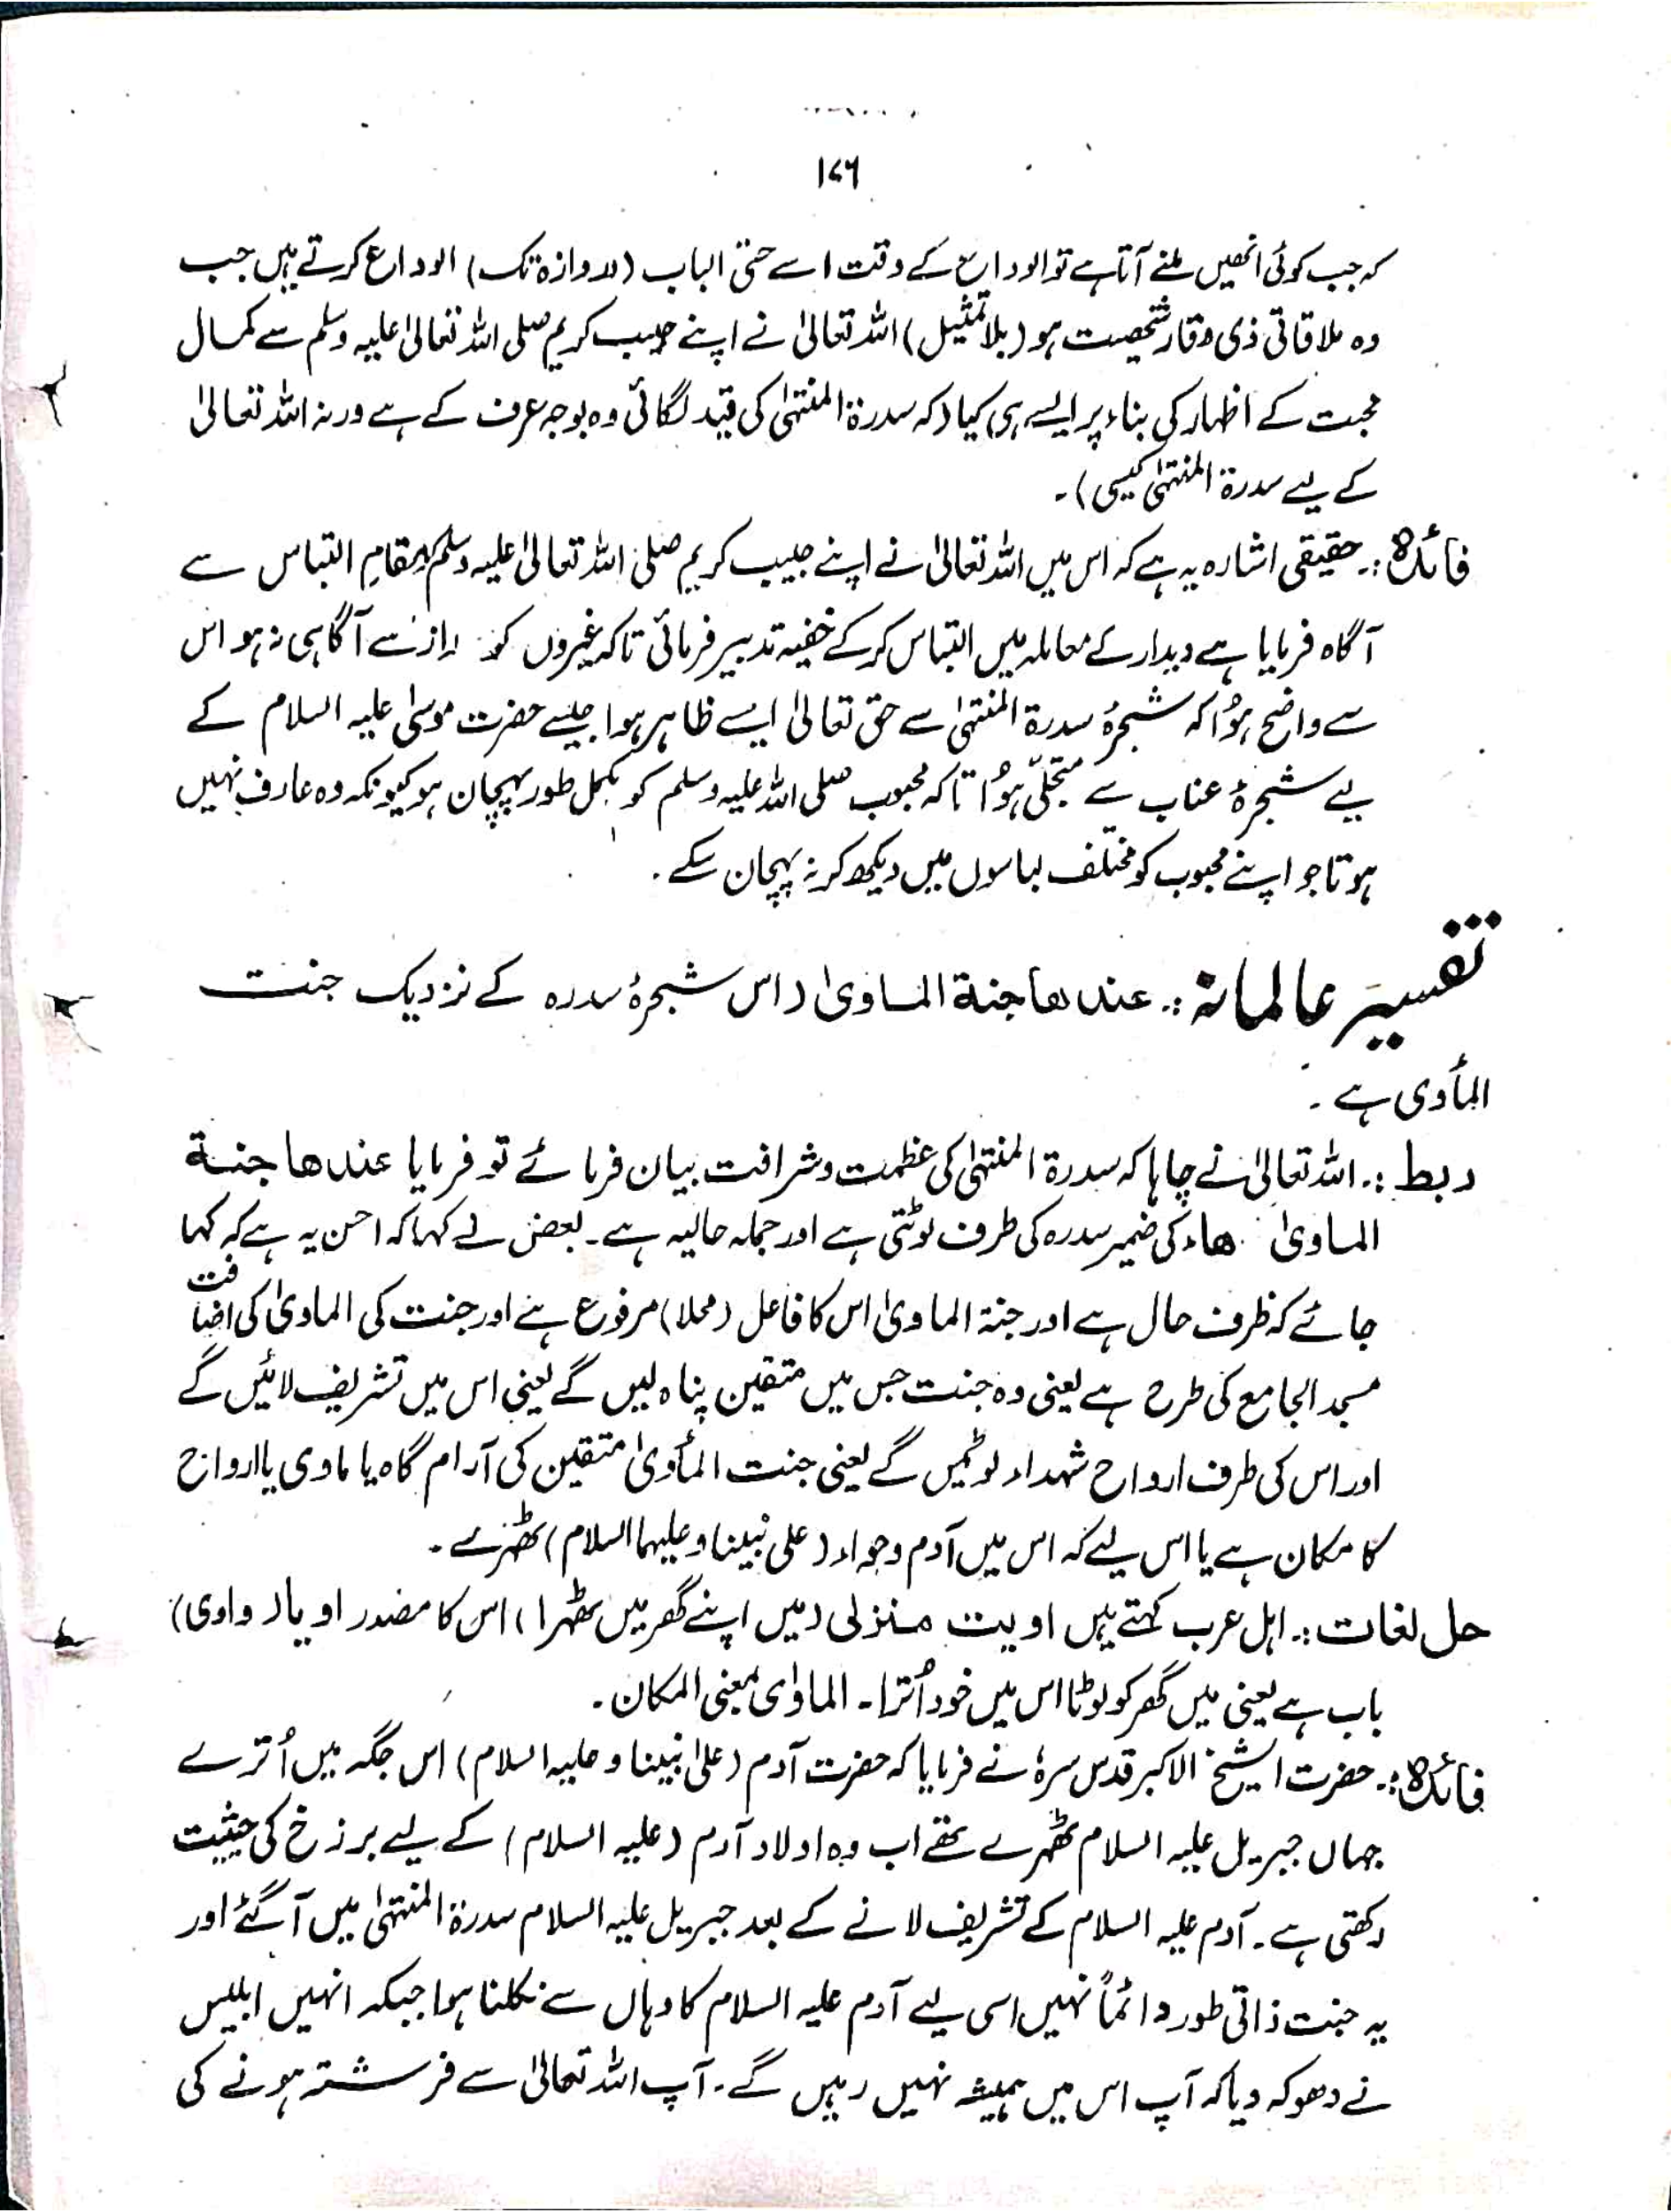 ۱۷۶
کہ جب کوئی انھیں ملنے آتا ہے تو الوداع کے وقت اسے حتیٰ الباب (دروازہ تک) الوداع کرتے ہیں جب
وہ ملاقاتی ذی وقار شخصیت ہو (بلا تمثیل) اللہ تعالیٰ نے اپنے حبیب کریم صلی اللہ تعالیٰ علیہ وسلم سے کمال
محبت کے اظہار کی بناء پر ایسے ہی کیا (کہ سدرۃ المنتہٰی کی قید لگائی وہ بوجہ عرف کے ہے ورنہ اللہ تعالیٰ
کے لیے سدرۃ المنتہٰی کیسی)۔
فائدہ :۔ حقیقی اشارہ یہ ہے کہ اس میں اللہ تعالیٰ نے اپنے حبیب کریم صلی اللہ تعالیٰ علیہ وسلم کو مقامِ التباس سے
آگاہ فرمایا ہے دیدار کے معاملہ میں التباس کرکے خفیہ تدبیر فرمائی تاکہ غیروں کو راز سے آگاہی نہ ہو اس
سے واضح ہُوا کہ شجرۂ سدرۃ المنتہٰی سے حق تعالیٰ ایسے ظاہر ہوا جیسے حضرت موسیٰ علیہ السلام کے
لیے شجرۂ عناب سے متجلّی ہُوا تاکہ محبوب صلی اللہ علیہ وسلم کو مکمل طور پہچان ہو کیونکہ وہ عارف نہیں
ہوتا جو اپنے محبوب کو مختلف لباسوں میں دیکھ کر نہ پہچان سکے۔
تفسیر عالمانہ :۔ عندھا جنۃ الماوٰی (اس شجرۂ سدرہ کے نزدیک جنت
المأوی ہے۔
ربط :۔ اللہ تعالیٰ نے چاہا کہ سدرۃ المنتہٰی کی عظمت و شرافت بیان فرمائے تو فرمایا عندھا جنۃ
الماویٰ ھاء کی ضمیر سدرہ کی طرف لوٹتی ہے اور جملہ حالیہ ہے۔ بعض نے کہا کہ احسن یہ ہے کہ کہا
جائے کہ ظرف حال ہے اور جنۃ الماویٰ اس کا فاعل (محلا) مرفوع ہے اور جنت کی الماویٰ کی اضافت
مسجد الجامع کی طرح ہے یعنی وہ جنت جس میں متقین پناہ لیں گے یعنی اس میں تشریف لائیں گے
اور اس کی طرف ارواح شہداء لوٹیں گے یعنی جنت المأویٰ متقین کی آرام گاہ یا ماوی یا ارواح
کا مکان ہے یا اس لیے کہ اس میں آدم و حواء (علی نبینا و علیہما السلام) ٹھہرے۔
حل لغات :۔ اہل عرب کہتے ہیں اویت منزلی (میں اپنے گھر میں ٹھہرا) اس کا مصدر اویا (وادی)
باب ہے یعنی میں گھر کو لوٹا اس میں خود اُترا۔ الماوٰی بمعنی المکان۔
فائدہ :۔ حضرت الشیخ الاکبر قدس سرہٗ نے فرمایا کہ حضرت آدم (علیٰ نبینا و علیہ السلام) اس جگہ میں اُترے
جہاں جبریل علیہ السلام ٹھہرے تھے اب وہ اولاد آدم (علیہ السلام) کے لیے برزخ کی حیثیت
رکھتی ہے۔ آدم علیہ السلام کے تشریف لانے کے بعد جبریل علیہ السلام سدرۃ المنتہٰی میں آگئے اور
یہ جنت ذاتی طور دائماً نہیں اسی لیے آدم علیہ السلام کا وہاں سے نکلنا ہوا جبکہ انہیں ابلیس
نے دھوکہ دیا کہ آپ اس میں ہمیشہ نہیں رہیں گے۔ آپ اللہ تعالیٰ سے فرشتہ ہونے کی